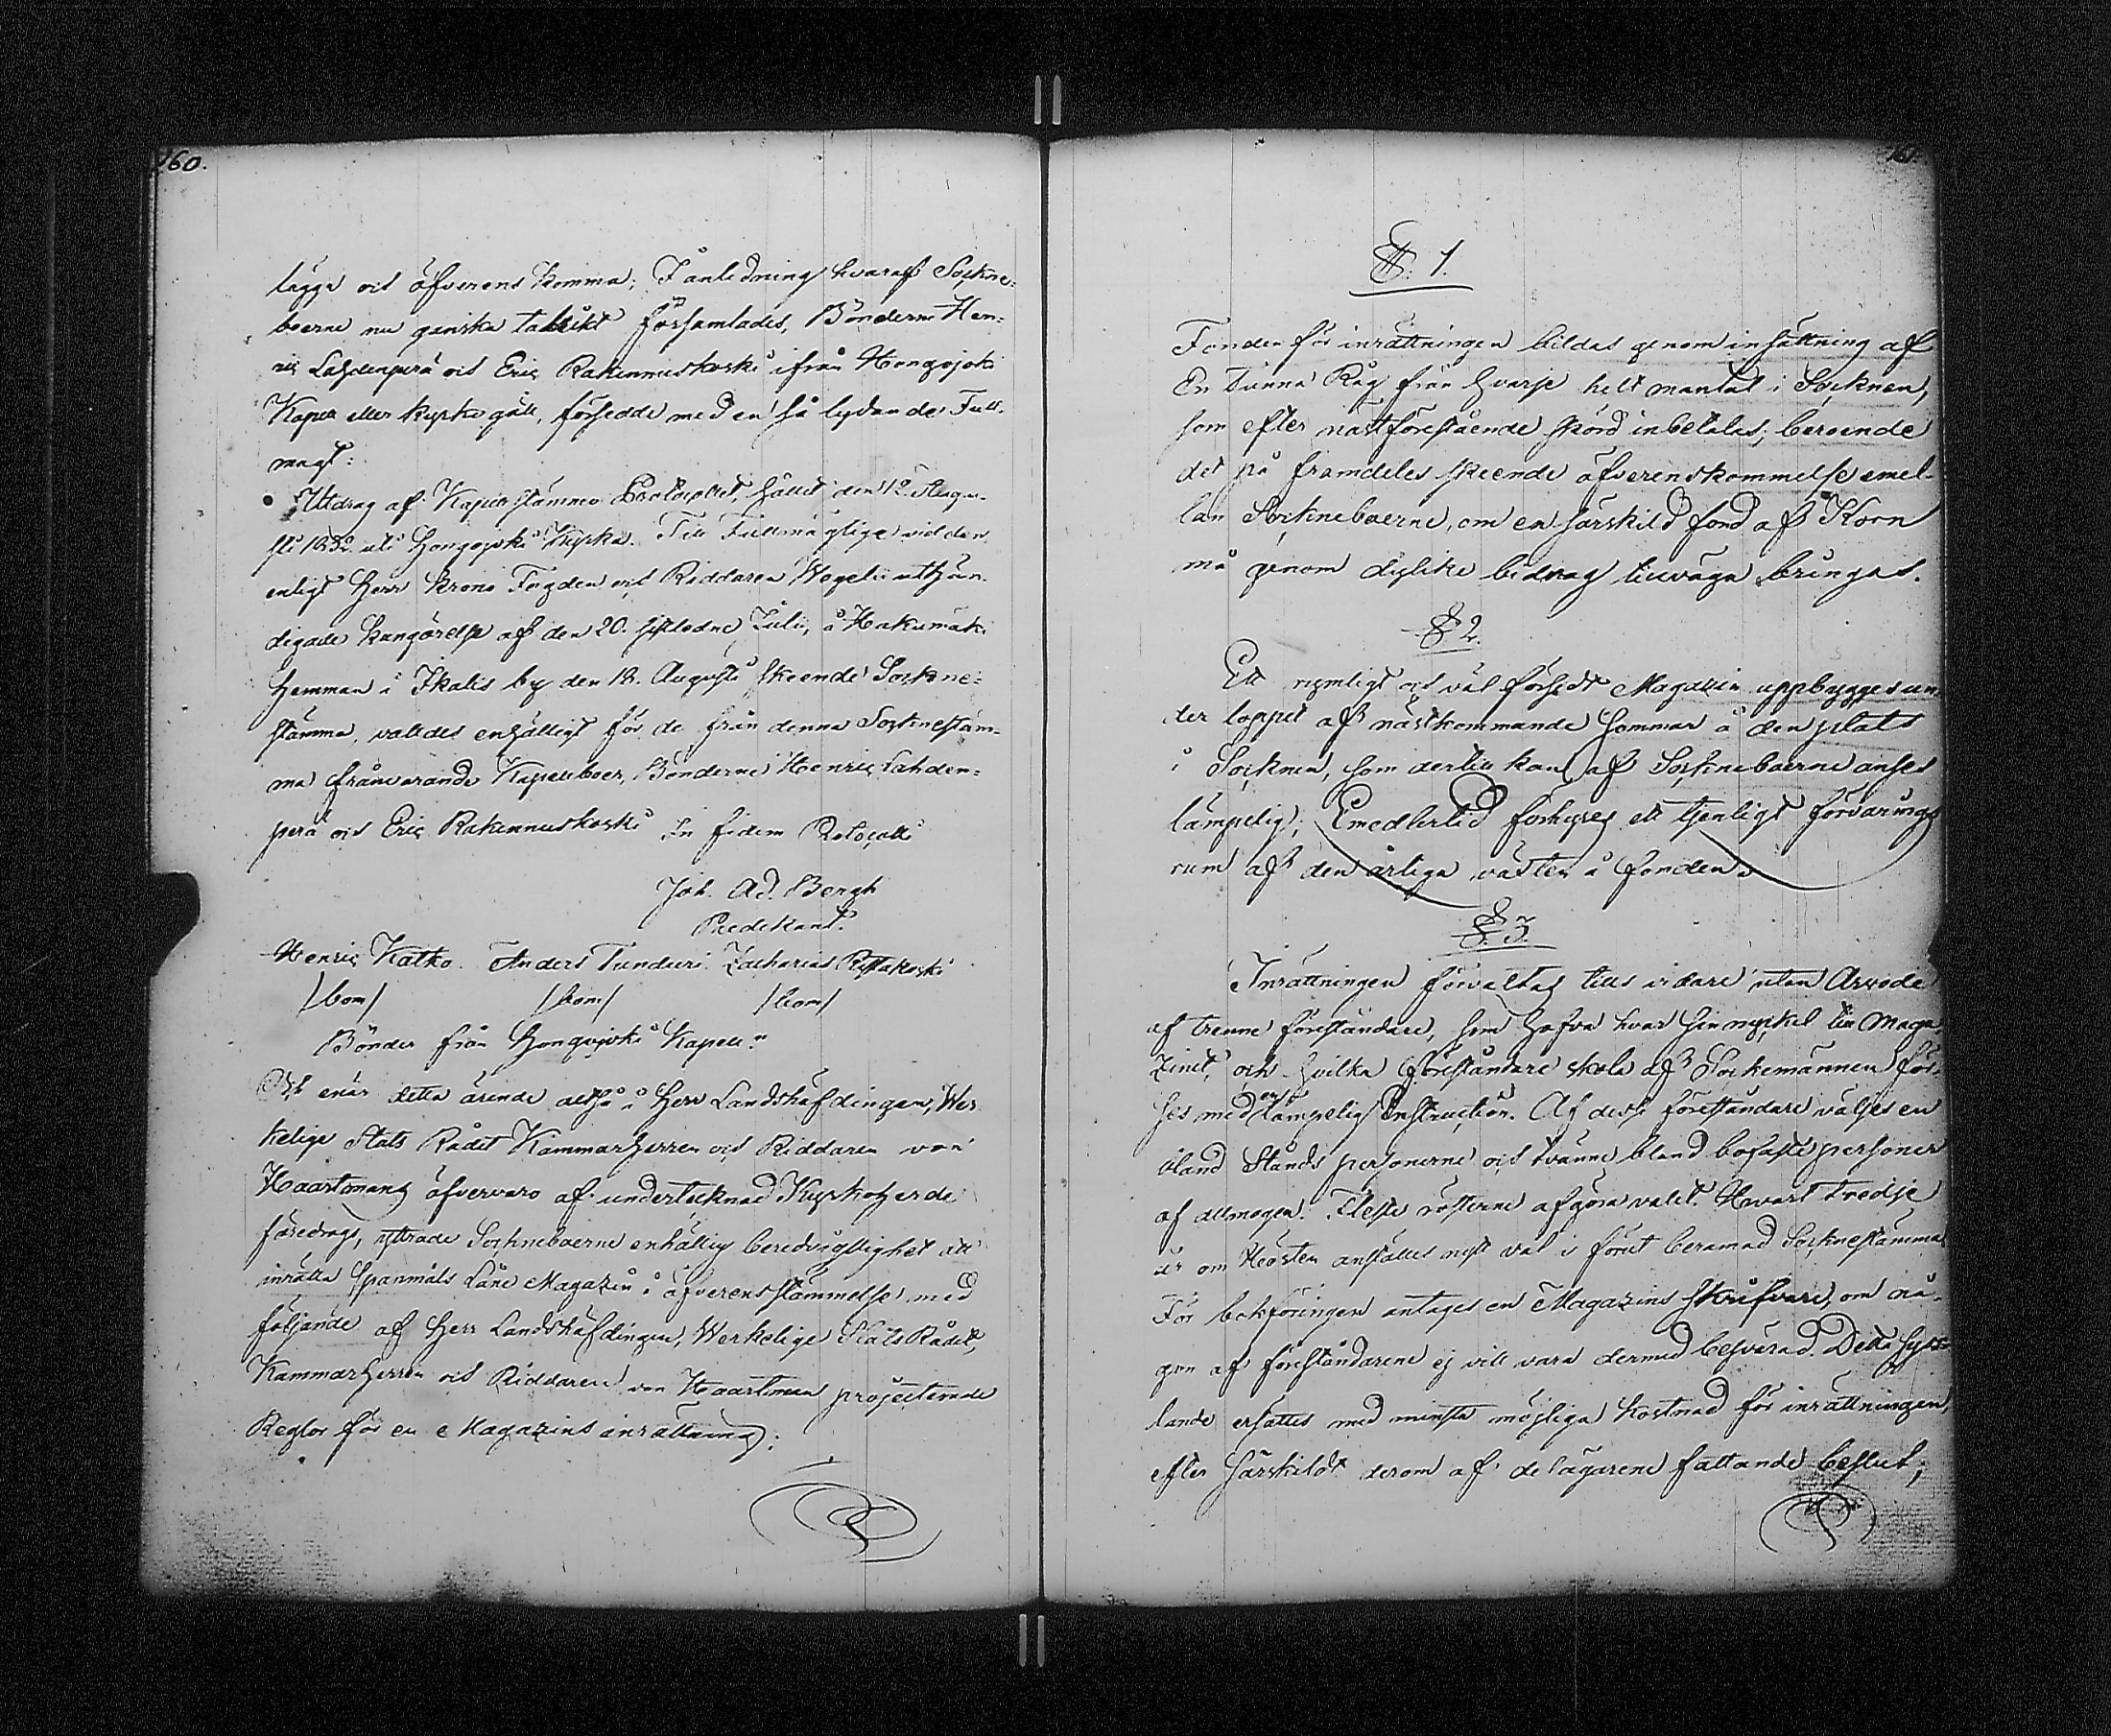 160.
lägga och öfverens komma; I anledning hvaraf Sockne-
boerne nu ganska talrikt församlades, Bönderne Hen-
ric Lahdenperä och Eric Rakennuskoski ifrån Hongojoki
Kapell eller kyrko gäll, försedde med en så lydande Full-
magt:
Utdrag af Kapellstämmo Protocollet, hållet den 12. Augu-
sti 1832 uti Hongojoki Kyrka. Till Fullmägtige vid den
enligt Herr Krono Fogden och Riddaren Wogelii utfär-
digade kungörelse af den 20. sistledne Julii, å Hakumäki
Hemman i Ikalis by den 18. Augusti skeende Sockne-
stämma, valdes enhälligt för de från denna Socknestäm-
ma frånvarande Kapellboer, Bönderne Henric Lahden-
perä och Eric Rakennuskoski In fidem Protocolli
Joh. Ad. Bergh
Predikant.
Henric Katko. Anders Tunduri. Zacharias
/bom/ /bom/ /bom/
Bönder från Hongojoki Kapell."
Och enär detta ärende altså i Herr Landshöfdingen, Wer-
kelige Stats Rådet Kammarherren och Riddaren von
Haartmans öfvervaro af undertecknad Kyrkoherde
föredrogs, yttrade Sockneboerne enhällig beredvillighet att
inrätta Spanmåls Låne Magazin i öfverensstämmelse med
följande af Herr Landshöfdingen, Werkelige Stats Rådet,
Kammarherren och Riddaren von Haartman projecterade
Reglor för en Magazins inrättning:
§. 1.
Fonden för inrättningen bildas genom insättning af
En Tunna Råg från hvarje helt mantal i Socknen,
som efter nästförestående skörd inbetalas; beroende
det på framdeles skeende öfverenskommelse emel-
lan Sockneboerne, om en särskild fond af Korn
må genom dylike bidrag tillväga bringas.
§ 2.
Ett rymligt och väl försedt Magazin uppbygges un-
der loppet af nästkommande Sommar å den plats
i Socknen, som dertill kan af Sockneboerne anses
lämpelig; Emedlertid förhyres ett tjenligt förvarings
rum af den årliga växten å fonden.
§. 3.
Inrättningen förvaltas tills vidare utan Arvode
af trenne föreståndare, som hafva hvar sin nyckel till Maga-
zinet, och hvilka föreståndare skola af Sockemännen för-
ses med en lämpelig Instruction. Af desse föreståndare väljes en
bland Stånds personerne och tvänne bland bofaste personer
af allmogen. Fleste rösterne afgöra valet. Hwart tredje
år om Hösten anställes nytt val i förut beramad Socknestämma
För bokföringen antages en Magazins Skrifvare, om nå-
gon af föreståndarene ej vill vara dermed besvärad. Detta hyss-
lande ersättes med minsta möjliga kostnad för inrättningen,
efter särskildt derom af delägarene fattande beslut;